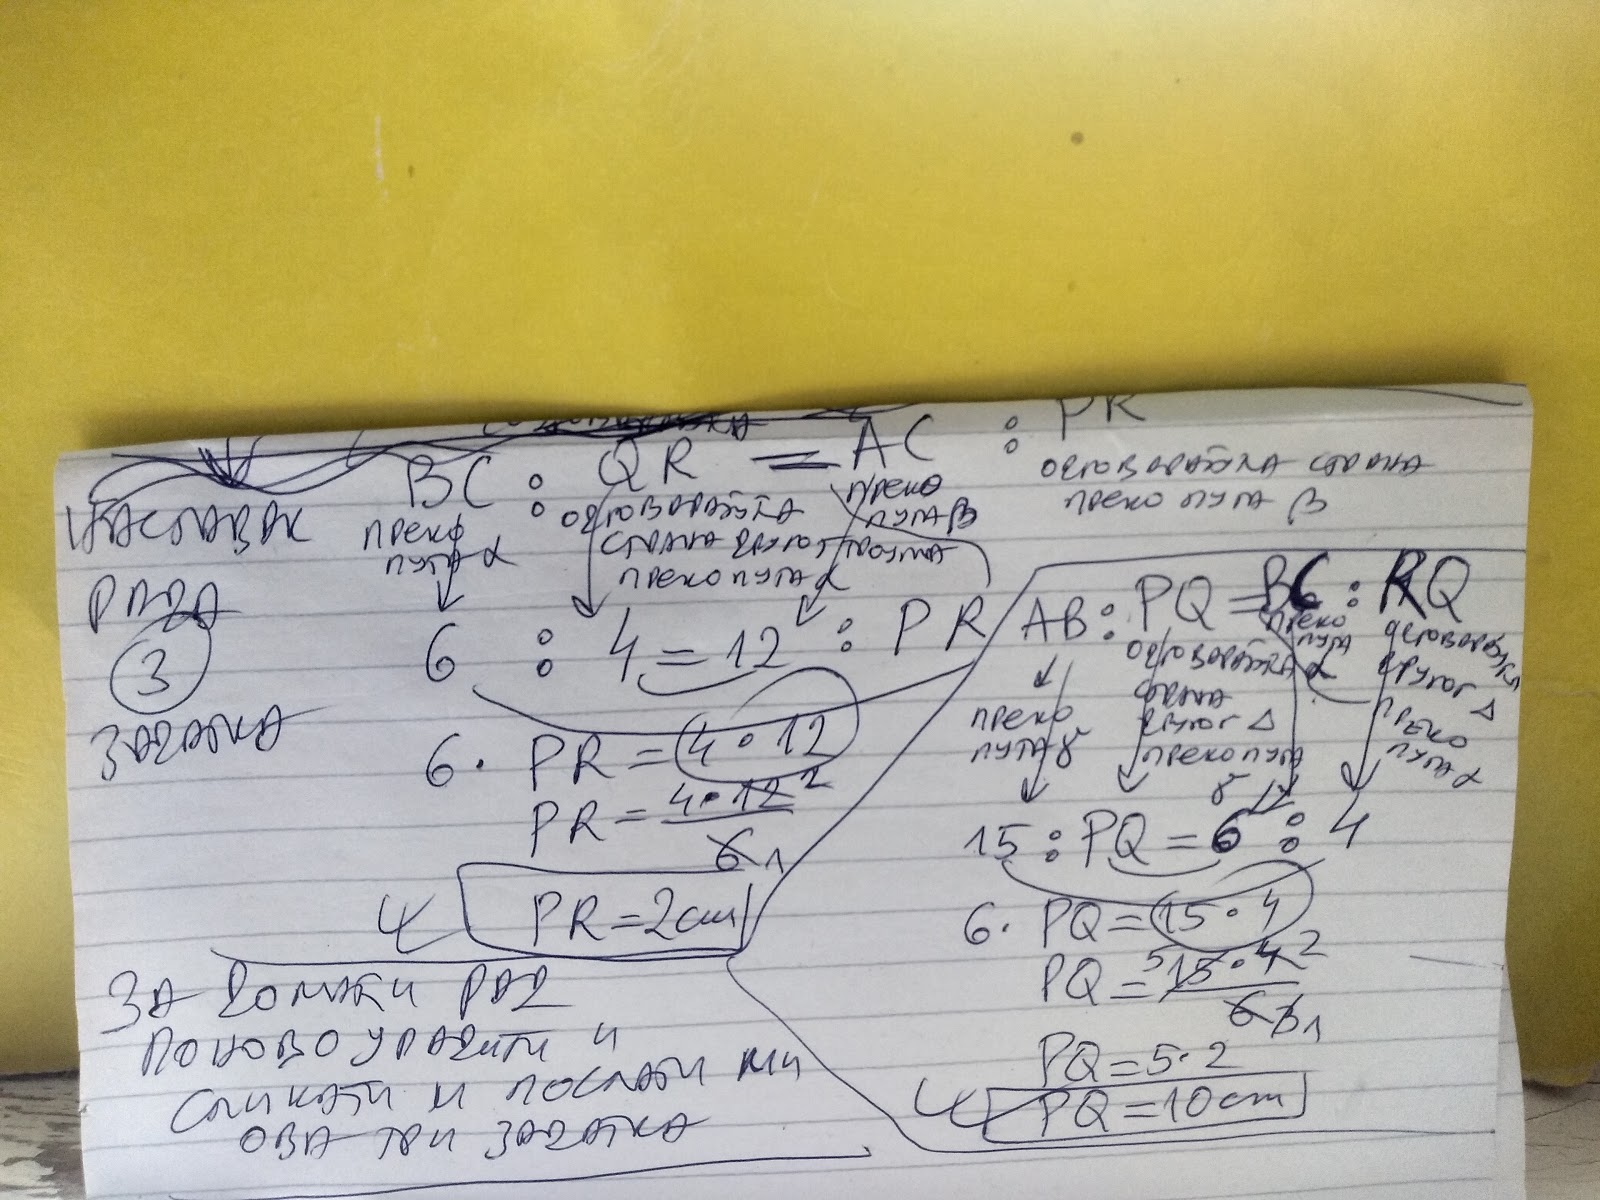 BC : QR = AC : PR
НАСТАВАК
РАДА
3
ЗАДАТКА
ПРЕКО
ПУТА α
ОДГОВАРАЈУЋА
СТРАНА ДРУГОГ ТРОУГЛА
ПРЕКО ПУТА α
ПРЕКО
ПУТА β
ОДГОВАРАЈУЋА СТРАНА
ПРЕКО ПУТА β
6 : 4 = 12 : PR
6 · PR = 4 · 12
PR = 4 · 12 2
6 1
PR = 2cm
AB : PQ = BC : RQ
ПРЕКО
ПУТА γ
ОДГОВАРАЈУЋА
СТРАНА
ДРУГОГ Δ
ПРЕКО ПУТА
γ
ПРЕКО
ПУТА
α
ДРУГОГ Δ
ПРЕКО
ПУТА α
15 : PQ = 6 : 4
6 · PQ = 15 · 4
PQ = 5 15 · 4 2
6 3 1
PQ = 5 · 2
PQ = 10cm
ЗА ДОМАЋИ РАД
ПОНОВО УРАДИТИ И
СЛИКАТИ И ПОСЛАТИ МИ
ОВА ТРИ ЗАДАТКА